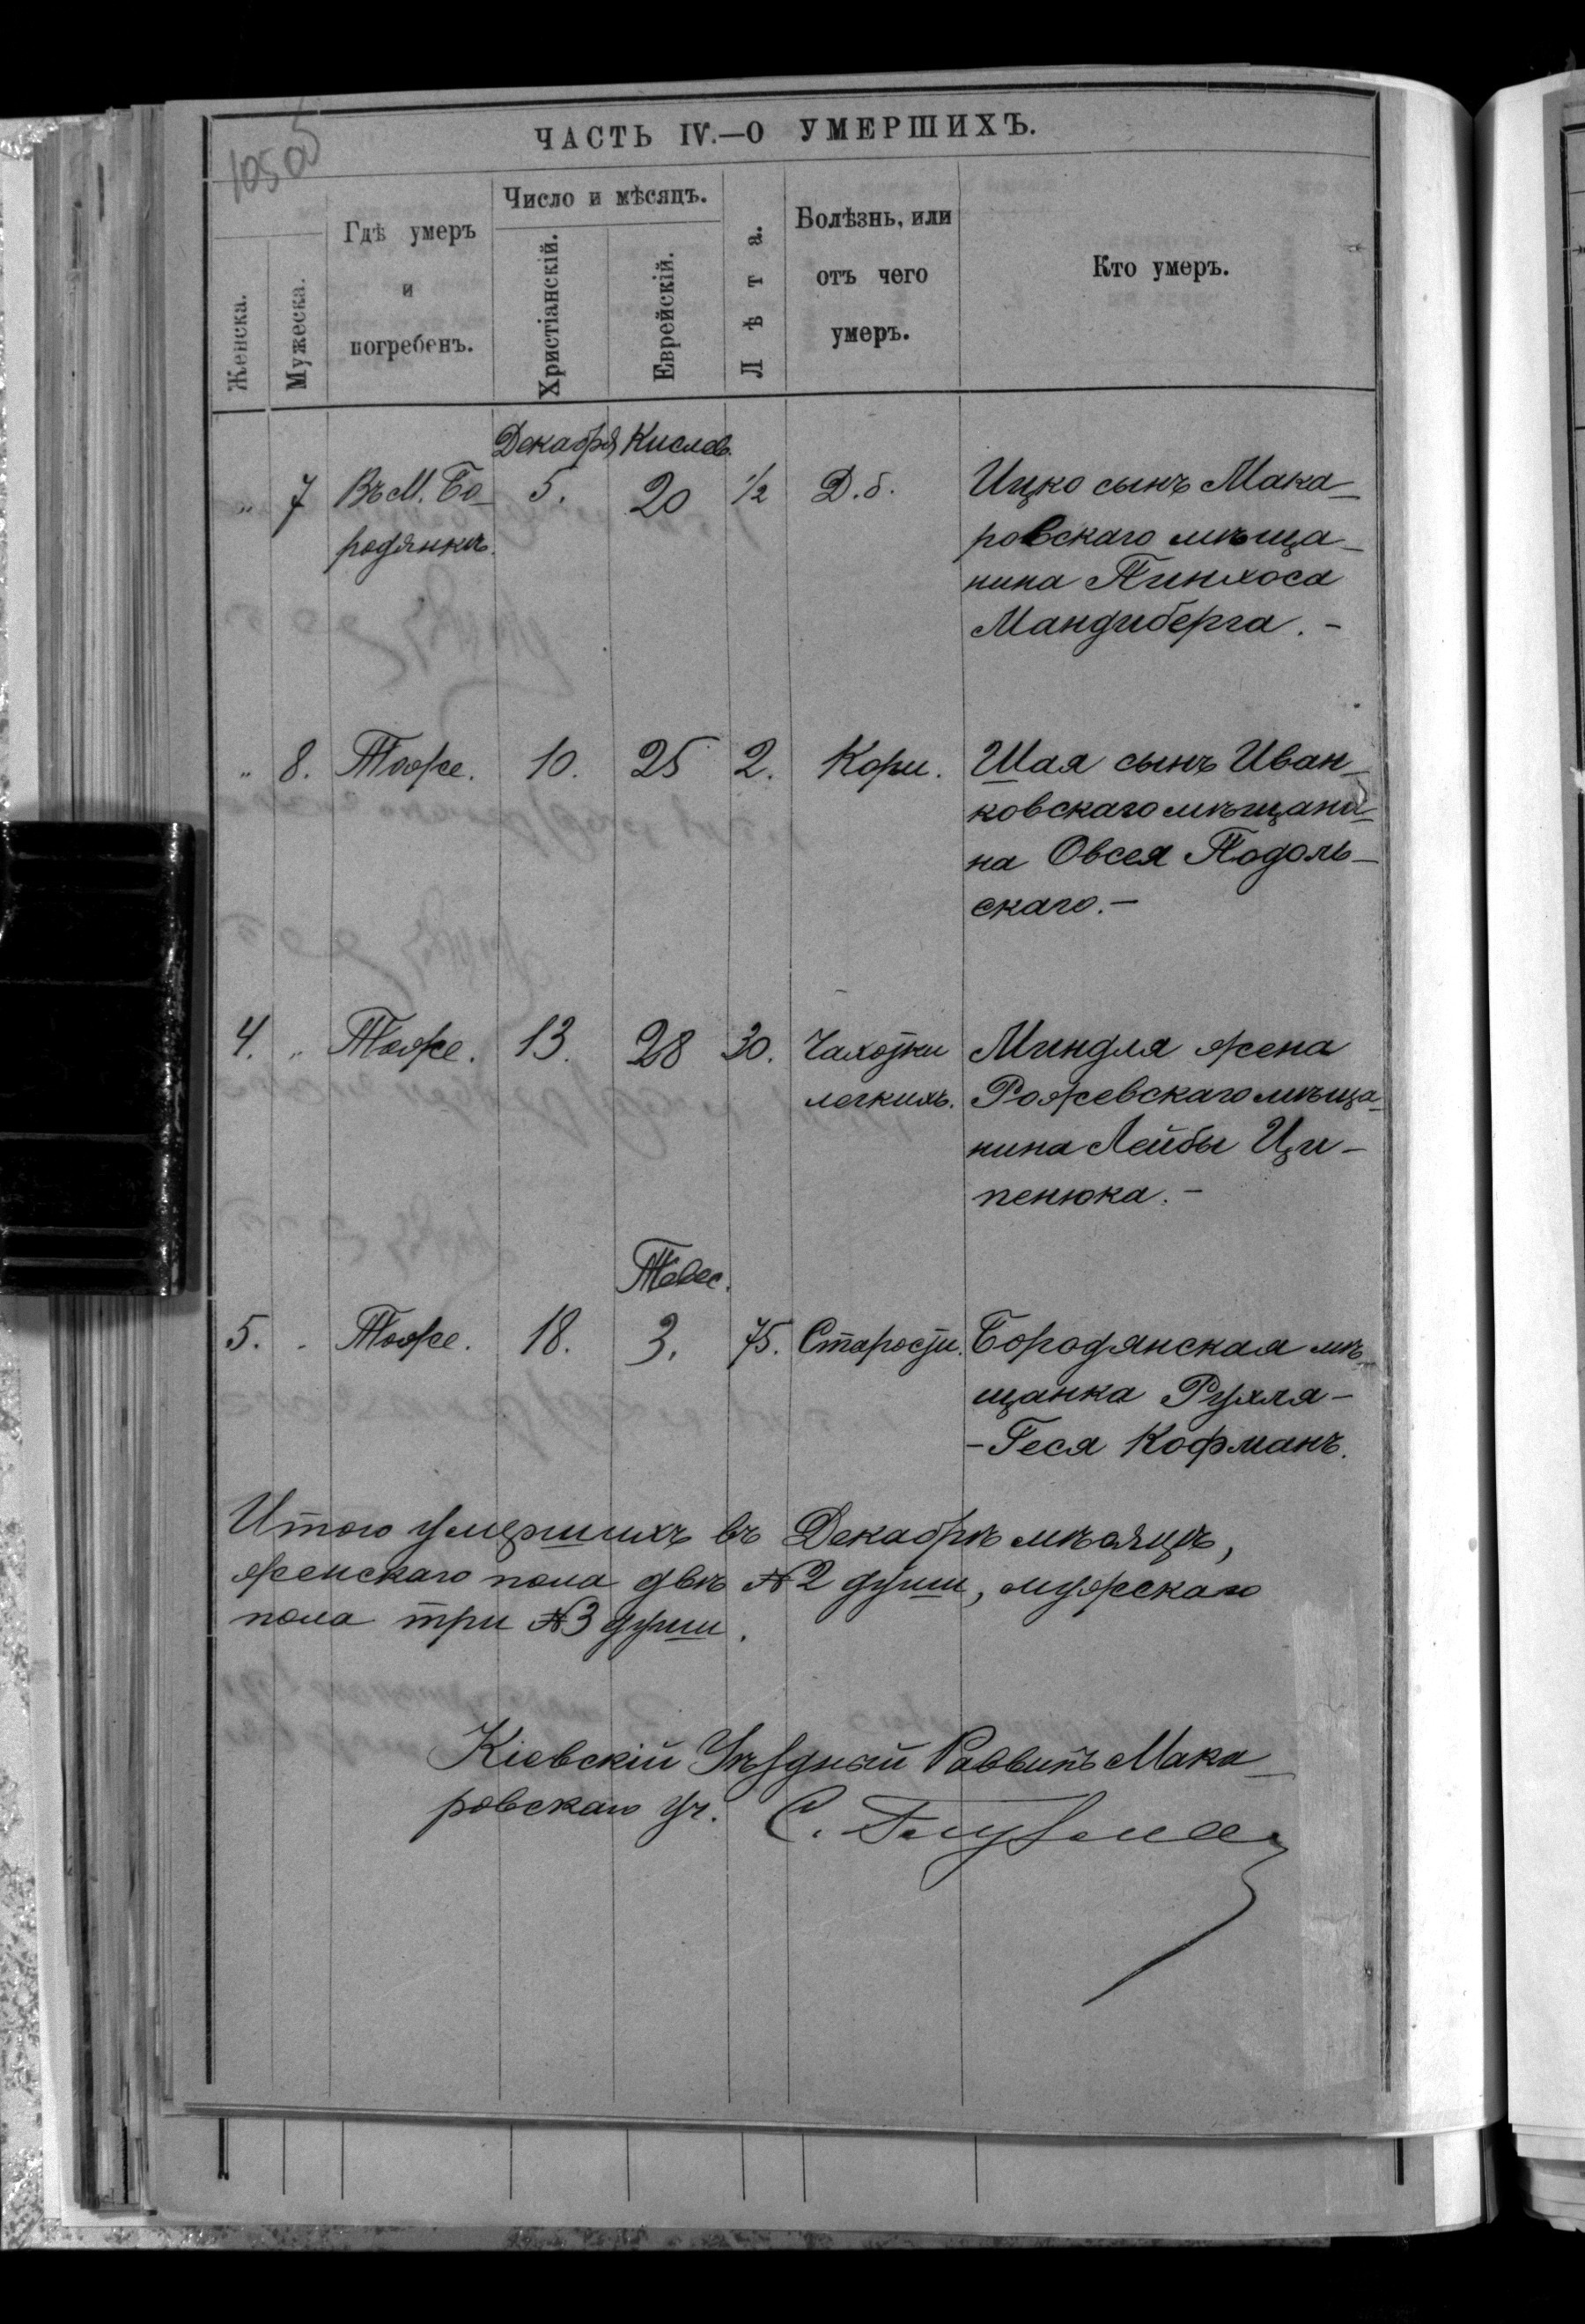 1050
ЧАСТЬ IV.—О УМЕРШИХЪ.
Женска.
Мужеска.
Гдѣ умеръ
и
погребенъ.
Число и мѣсяцъ.
Христіанскій.
Еврейскій.
Лѣта.
Болѣзнь, или
отъ чего
умеръ.
Кто умеръ.
Декабря Кислев.
„ 7 Въ М. Бо- 5. 20 1/2 Д. б. Ицко сынъ Мака-
родянкѣ. ровскаго мѣща-
нина Пинхоса
Мандиберга. -
„ 8. Тоже. 10. 25 2. Кори. Шая сынъ Иван-
ковскаго мѣщани-
на Овсея Подоль-
скаго. -
4. „ Тоже. 13. 28 30. Чахотки Миндля жена
легкихъ. Рожевскаго мѣща-
нина Лейбы Ци-
пенюка. -
Тевес.
5. „ Тоже. 18. 3. 75. Старости. Бородянская мѣ-
щанка Рухля-
-Геся Кофманъ.
Итого умершихъ въ Декабрѣ мѣсяцѣ,
женскаго пола двѣ № 2 души, мужскаго
пола три № 3 души.
Кіевскій Уѣздный Раввинъ Мака-
ровскаго уч. С.